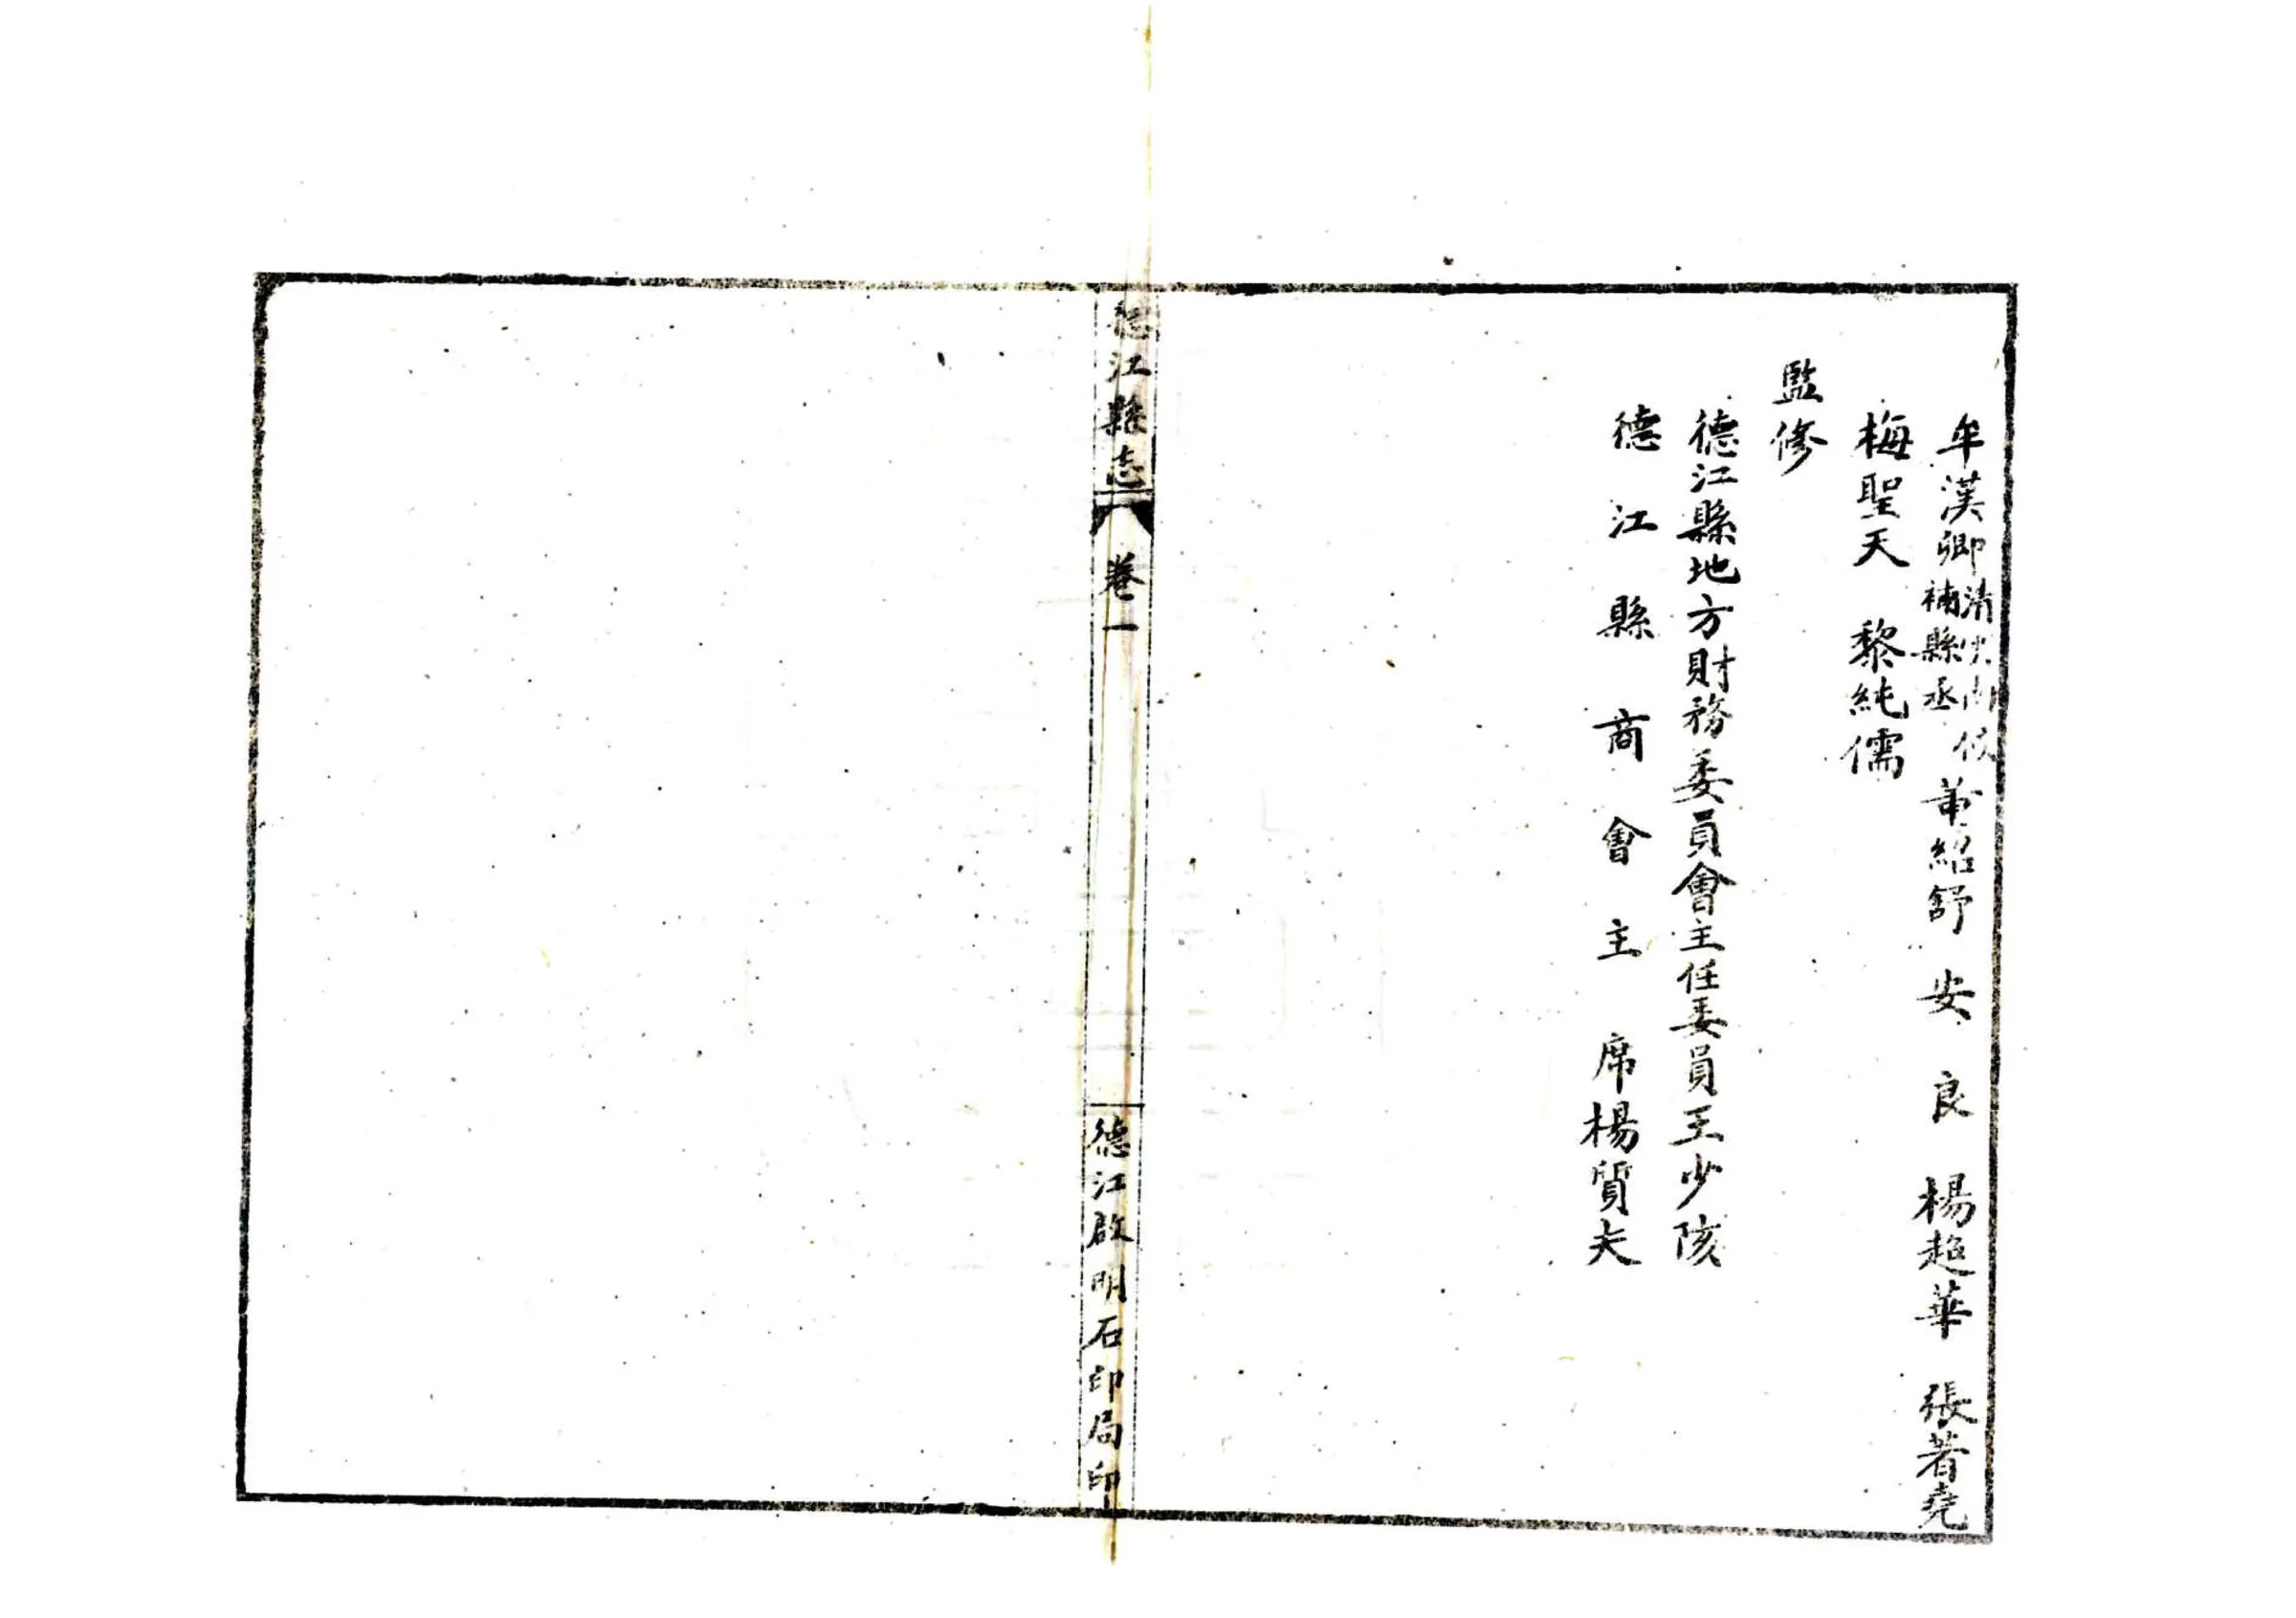 牟漢卿清 候補縣丞 紹舒 安良 楊超華 張著堯
梅聖天 黎純儒
監修
德江縣地方財務委員會主任委員王少陔
德江縣商會主席楊質夫
德江縣志 卷一 德江啟明石印局印